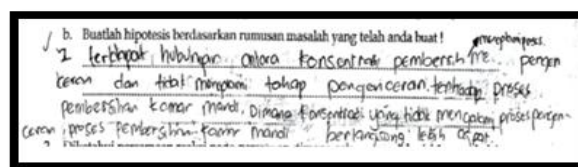 b. Buatlah hipotesis berdasarkan rumusan masalah yang telah anda buat !
1 terdapat hubungan antara konsentrasi pembersih pengen
ceran dan tidak mengalami tahap pengenceran terhadap proses
pembersihan kamar mandi. Dimana konsentrasi yang tidak mengalami proses pengen-
ceran proses pembersihan kamar mandi berlangsung lebih cepat